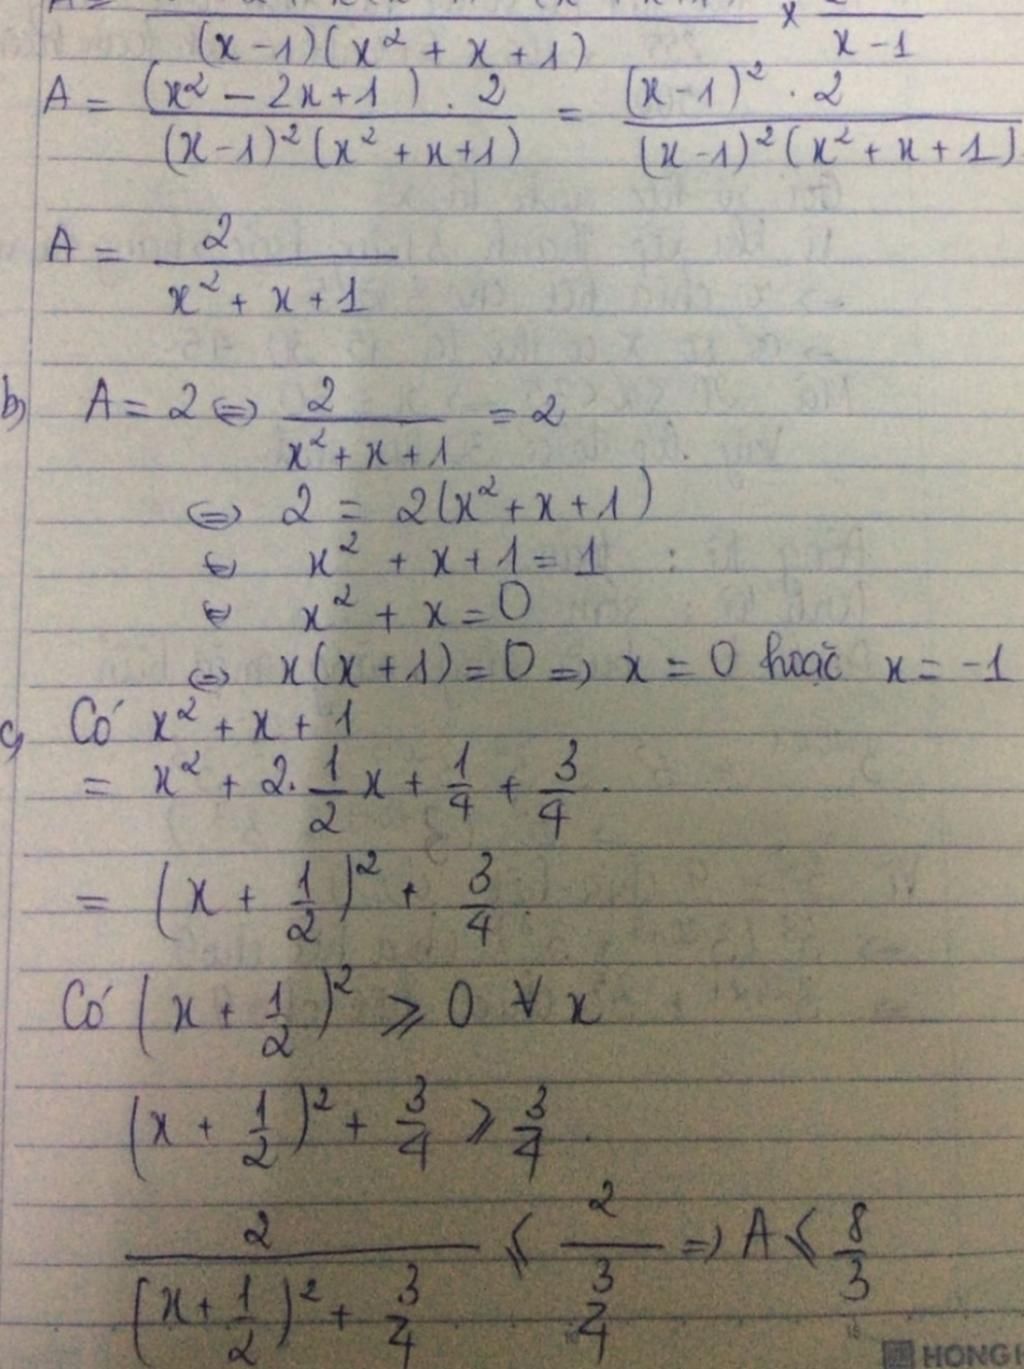 (x-1)(x² + x + 1) × x-1
A = (x² - 2x+1) . 2 / (x-1)² (x² + x+1) = (x-1)² . 2 / (x-1)² (x² + x + 1)
A = 2 / x² + x + 1
b) A = 2 ⇔ 2 / x² + x + 1 = 2
⇔ 2 = 2(x² + x + 1)
⇔ x² + x + 1 = 1
⇔ x² + x = 0
⇔ x(x + 1) = 0 ⇒ x = 0 hoặc x = -1
c) Có x² + x + 1
= x² + 2. 1/2 x + 1/4 + 3/4 .
= (x + 1/2)² + 3/4
Có (x + 1/2)² ⩾ 0 ∀ x
(x + 1/2)² + 3/4 ⩾ 3/4 .
2 / (x + 1/2)² + 3/4 ⩽ 2 / 3/4 ⇒ A ⩽ 8/3